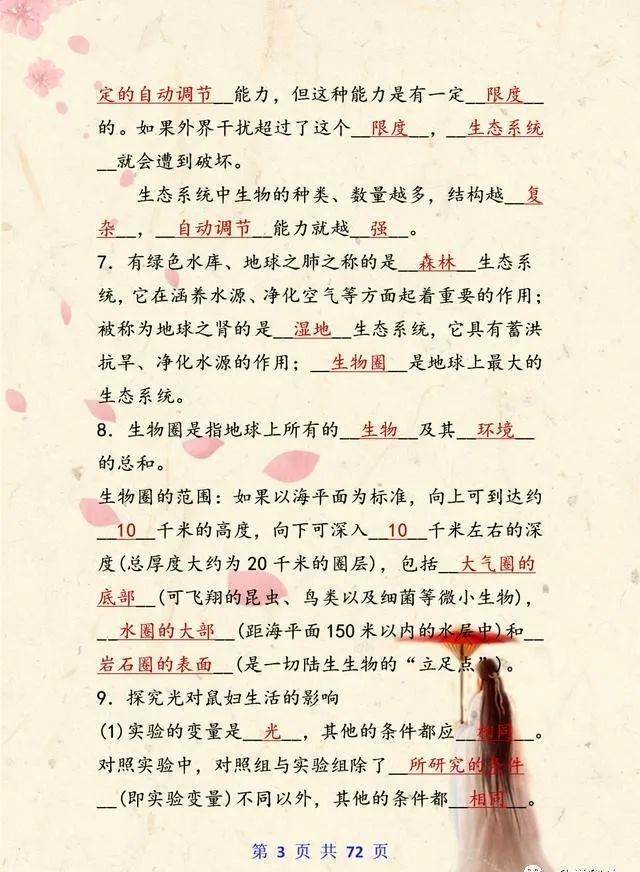 定的自动调节__能力，但这种能力是有一定__限度__
的。如果外界干扰超过了这个__限度__，__生态系统
__就会遭到破坏。
生态系统中生物的种类、数量越多，结构越__复
杂__，__自动调节__能力就越__强__。
7．有绿色水库、地球之肺之称的是__森林__生态系
统，它在涵养水源、净化空气等方面起着重要的作用；
被称为地球之肾的是__湿地__生态系统，它具有蓄洪
抗旱、净化水源的作用；__生物圈__是地球上最大的
生态系统。
8．生物圈是指地球上所有的__生物__及其__环境__
的总和。
生物圈的范围：如果以海平面为标准，向上可到达约
__10__千米的高度，向下可深入__10__千米左右的深
度(总厚度大约为20千米的圈层)，包括__大气圈的
底部__(可飞翔的昆虫、鸟类以及细菌等微小生物)，
__水圈的大部__(距海平面150米以内的水层中)和__
岩石圈的表面__(是一切陆生生物的“立足点”)。
9．探究光对鼠妇生活的影响
(1)实验的变量是__光__，其他的条件都应__相同__。
对照实验中，对照组与实验组除了__所研究的条件
__(即实验变量)不同以外，其他的条件都__相同__。
第 3 页 共 72 页